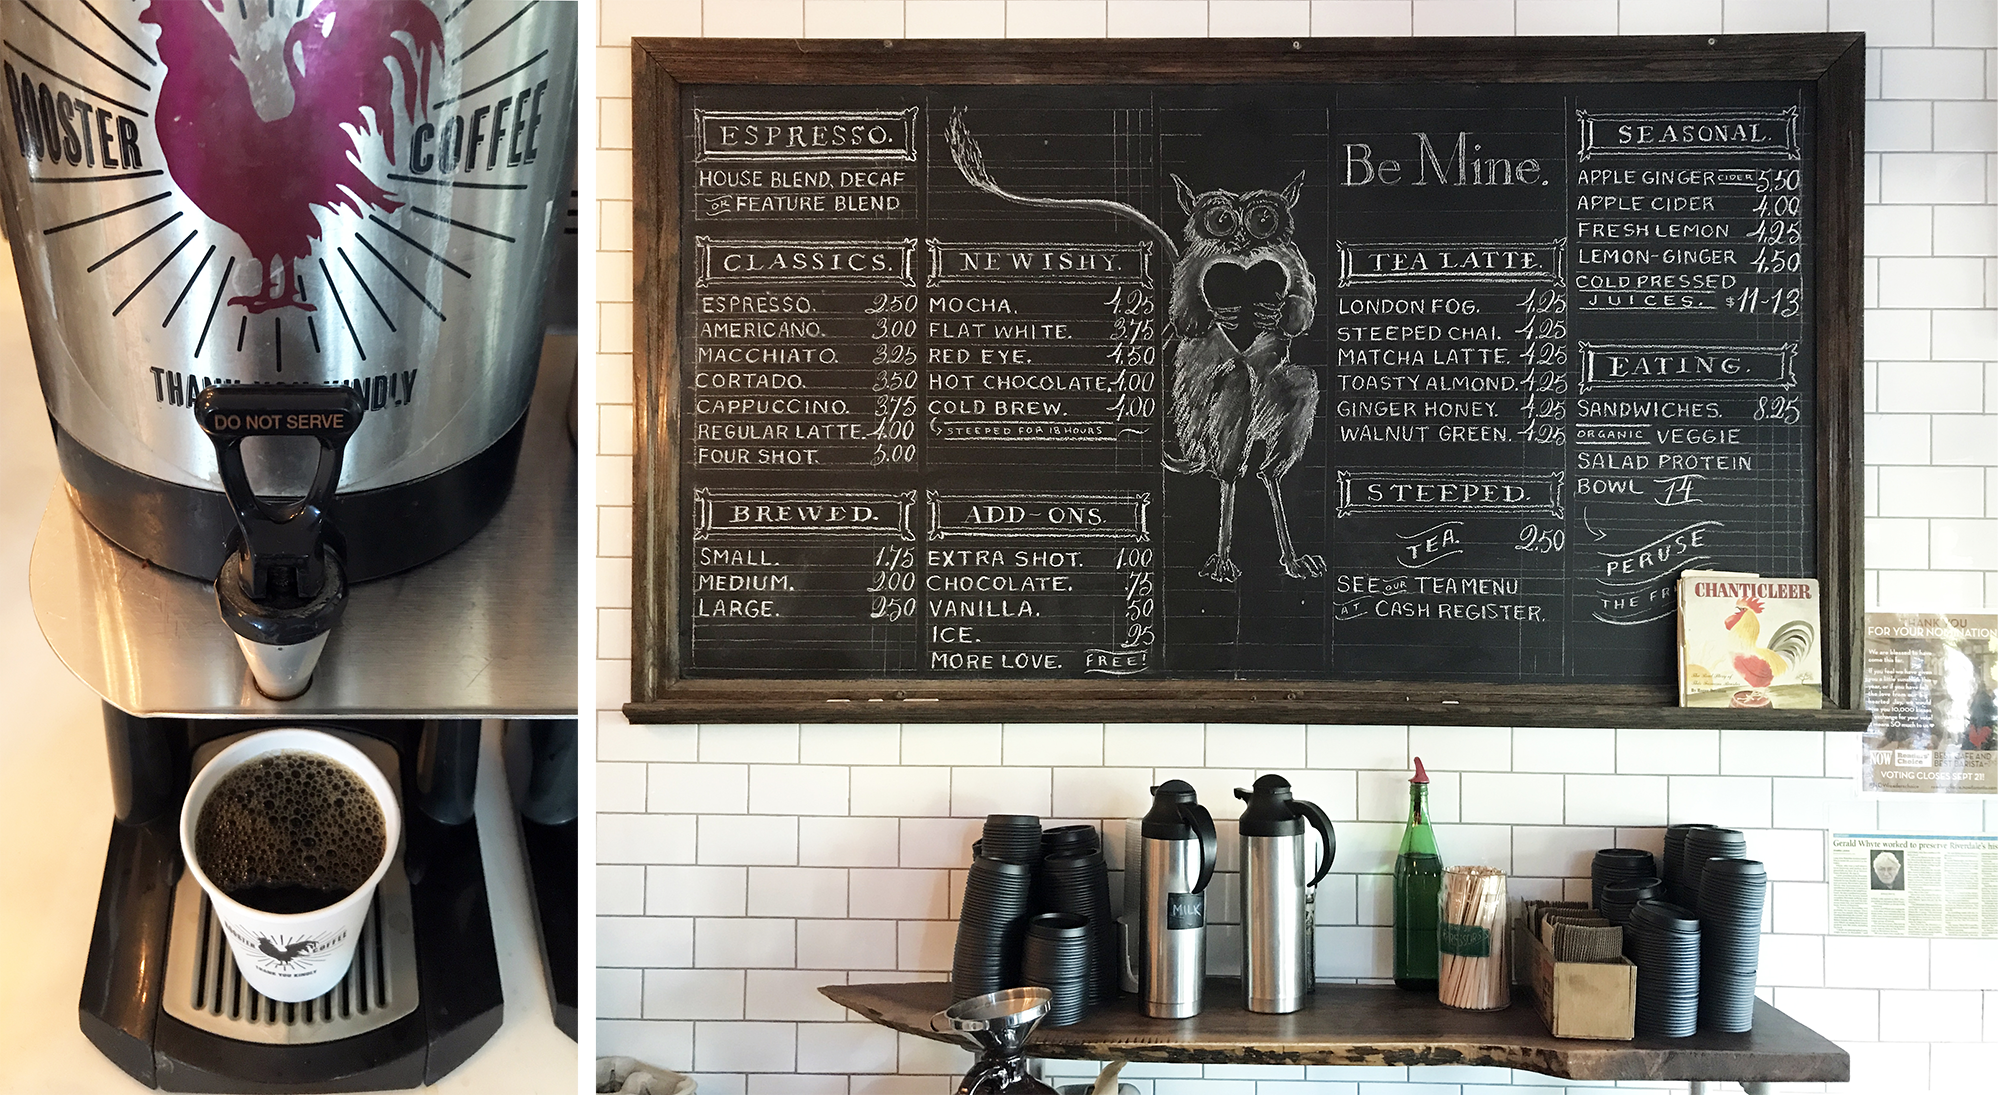 ROOSTER COFFEE
THANK YOU KINDLY
DO NOT SERVE
ROOSTER COFFEE
THANK YOU KINDLY
ESPRESSO.
HOUSE BLEND, DECAF
OR FEATURE BLEND
CLASSICS.
ESPRESSO. 2.50
AMERICANO. 3.00
MACCHIATO. 3.25
CORTADO. 3.50
CAPPUCCINO. 3.75
REGULAR LATTE. 4.00
FOUR SHOT. 5.00
BREWED.
SMALL. 1.75
MEDIUM. 2.00
LARGE. 2.50
NEWISHY.
MOCHA. 4.25
FLAT WHITE. 3.75
RED EYE. 4.50
HOT CHOCOLATE. 4.00
COLD BREW. 4.00
STEEPED FOR 18 HOURS
ADD-ONS.
EXTRA SHOT. 1.00
CHOCOLATE. .75
VANILLA. .50
ICE. .25
MORE LOVE. FREE!
Be Mine.
TEA LATTE.
LONDON FOG. 4.25
STEEPED CHAI. 4.25
MATCHA LATTE. 4.25
TOASTY ALMOND. 4.25
GINGER HONEY. 4.25
WALNUT GREEN. 4.25
STEEPED.
TEA. 2.50
SEE OUR TEA MENU
AT CASH REGISTER.
SEASONAL.
APPLE GINGER CIDER 5.50
APPLE CIDER 4.00
FRESH LEMON 4.25
LEMON-GINGER 4.50
COLD PRESSED
JUICES. $11-13
EATING.
SANDWICHES. 8.25
ORGANIC VEGGIE
SALAD PROTEIN
BOWL 14
PERUSE
THE
CHANTICLEER
THANK YOU
FOR YOUR NOMINATION
We are blessed to have
come this far.
NOW Readers' Choice
VOTING CLOSES SEPT 21!
Gerald Whyte worked to preserve Riverdale's
MILK